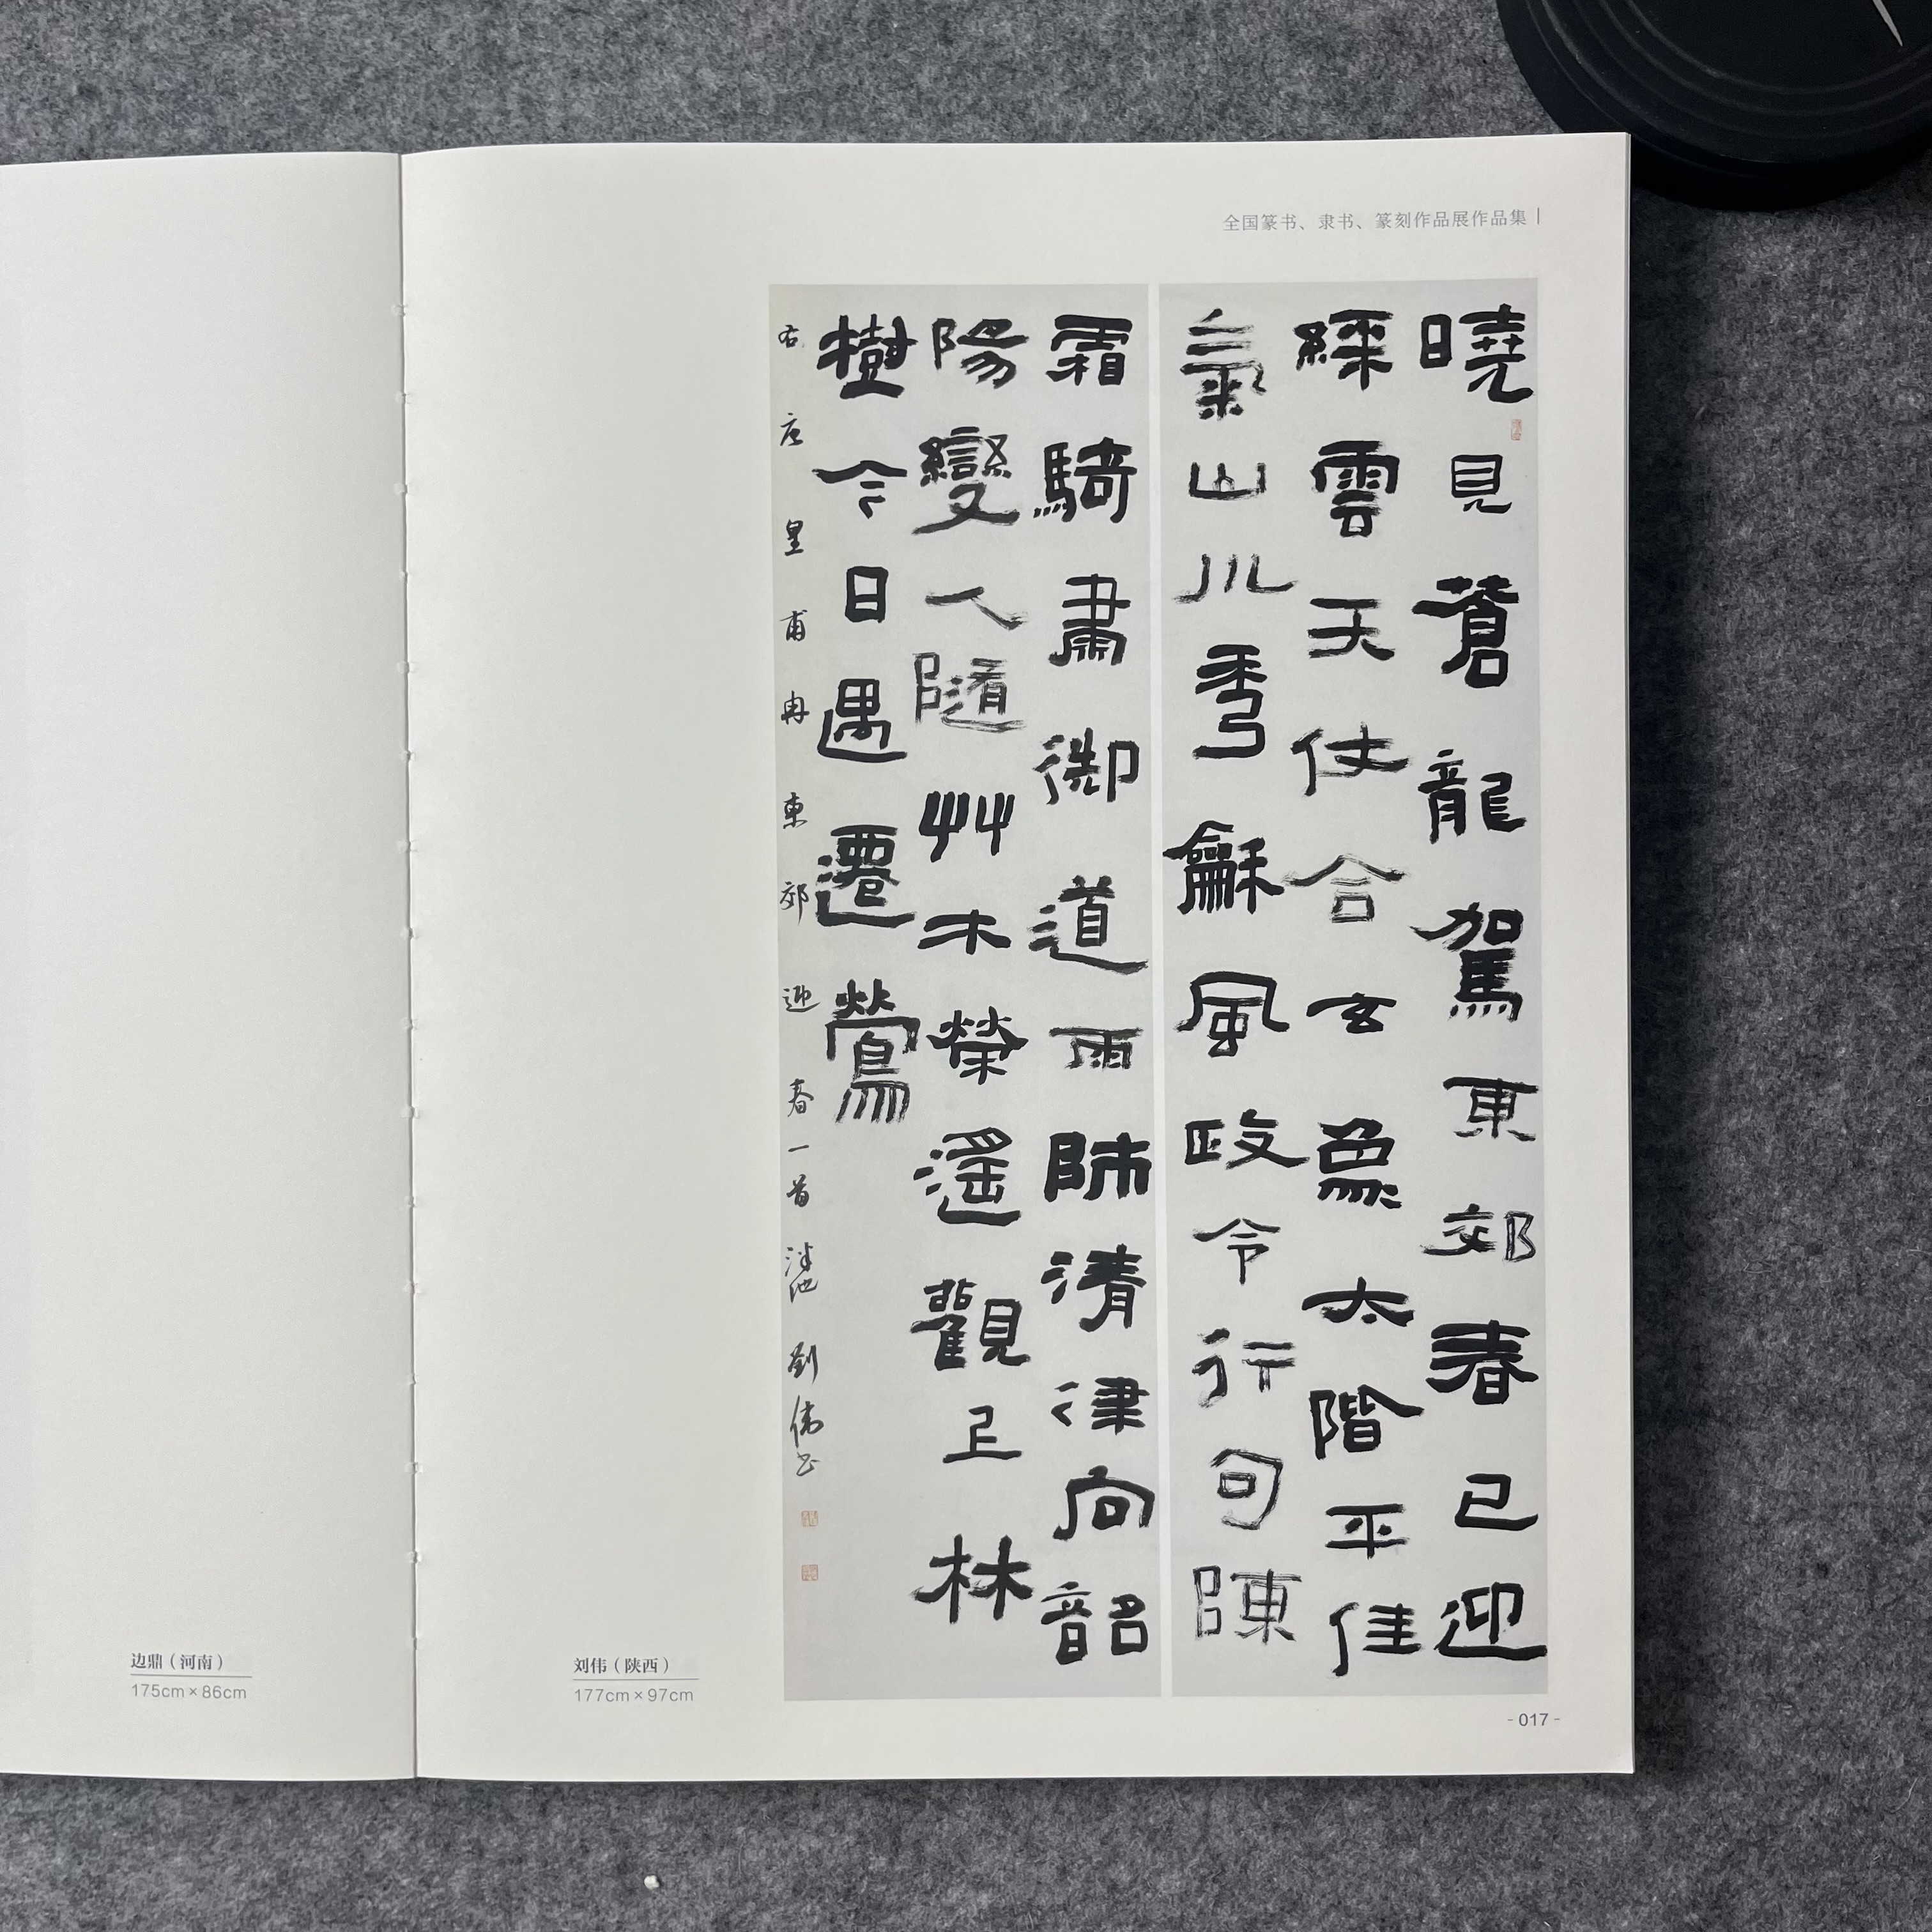 全国篆书、隶书、篆刻作品展作品集
曉見蒼龍駕東郊春已迎
綵雲天仗合玄象太階平佳
氣山川秀龢風政令行句陳
霜騎肅御道雨師清律向韶
陽變人隨艸木榮遙觀上林
樹今日遇遷鶯
右唐皇甫冉東郊迎春一首 劉偉書
边鼎（河南）
175cm×86cm
刘伟（陕西）
177cm×97cm
-017-